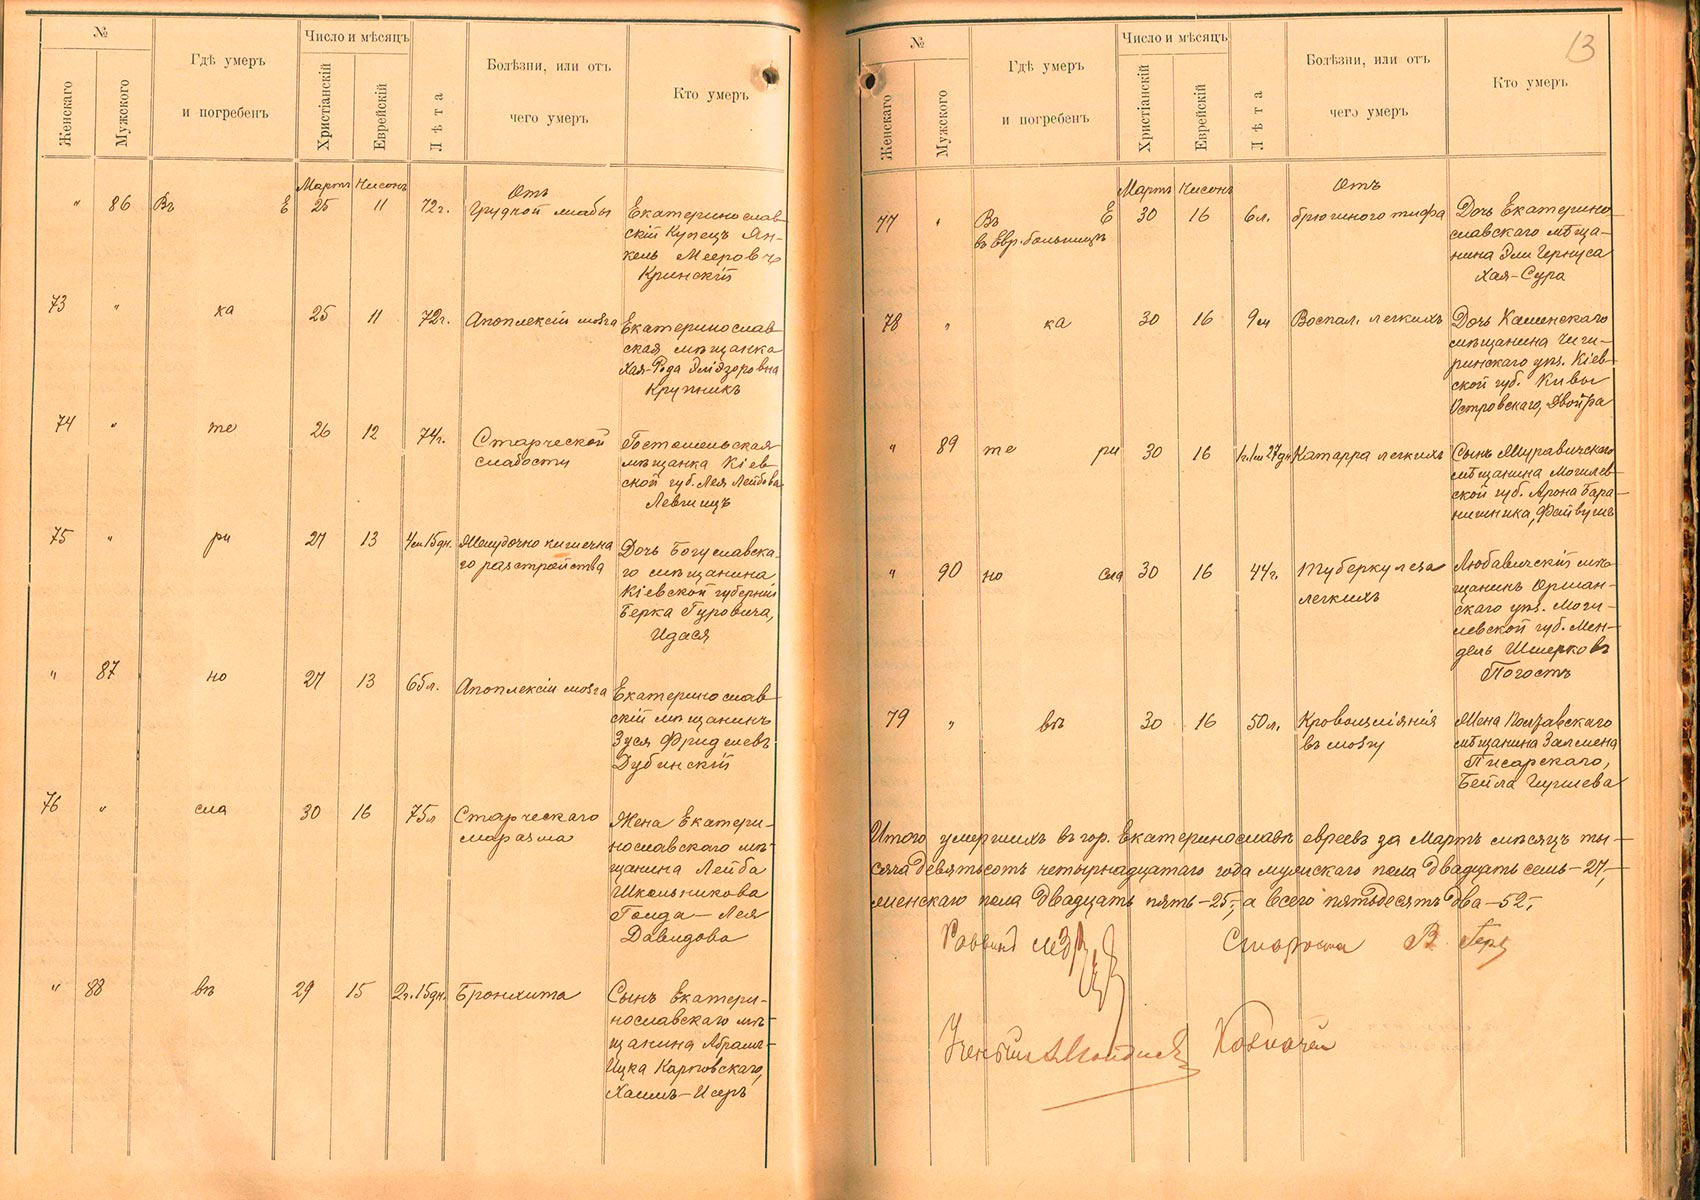 №
Женскаго
Мужского
Гдѣ умеръ
и погребенъ
Число и мѣсяцъ
Христіанскій
Еврейскій
Лѣта
Болѣзни, или отъ
чего умеръ
Кто умеръ
Мартъ Нисонъ
Отъ
" 86 Въ Е 25 11 72г. грудной жабы
Екатеринослав
скій Купецъ Ян-
кель Мееровъ
Кринскій
73 " ка 25 11 72г. Апоплексіи мозга
Екатеринослав
ская мѣщанка
Хая-Рода Эліазоровна
Крупникъ
74 " те 26 12 74г. Старческой
слабости
Гостомельская
мѣщанка Кіев
ской губ. Лея Лейбова
75 " ри 27 13 4м 15дн. Желудочно кишечна
го разстройства
Дочь Богуславска-
го мѣщанина
Кіевской губерніи
Берка Гуровича,
Идася
" 87 но 27 13 65л. Апоплексіи мозга
Екатеринослав
скій мѣщанинъ
Зуся Фридлевъ
Дубинскій
76 " сла 30 16 75л Старческаго
маразма
Жена Екатери-
нославскаго мѣ-
щанина Лейба
Школьникова
Голда-Лея
Давидова
" 88 въ 29 15 2г. 15дн. Бронхита
Сынъ Екатери-
нославскаго мѣ-
щанина Абрам-
Ицка Карповскаго,
Хаимъ-Исеръ
13
№
Женскаго
Мужского
Гдѣ умеръ
и погребенъ
Число и мѣсяцъ
Христіанскій
Еврейскій
Лѣта
Болѣзни, или отъ
чего умеръ
Кто умеръ
Мартъ Нисонъ
Отъ
77 " Въ Е 30 16 6л. брюшного тифа
въ Евр. больницѣ
Дочь Екатерино
славскаго мѣща-
нина Эли Черкуса
Хая-Сура
78 " ка 30 16 9м Воспал. легкихъ
Дочь Каменскаго
мѣщанина Чиги-
ринскаго уѣз. Кіев-
ской губ. Кивы
Островскаго, Двойра
" 89 те ри 30 16 1г. 1м 27дн Катарра легкихъ
Сынъ Журавичскаго
мѣщанина Могилев
ской губ. Арона Бара-
нишника, Файвушъ
" 90 но сла 30 16 44г. Туберкулеза
легкихъ
Любавичскій мѣ
щанинъ Оршан-
скаго уѣз. Моги-
левской губ. Мен-
дель Шмерковъ
Погостъ
79 " въ 30 16 50л. Кровоизліянія
въ мозгу
Жена Полтавскаго
мѣщанина Залмена
Писарскаго,
Бейла Гиршева
Итого умершихъ въ гор. Екатеринославѣ евреевъ за Мартъ мѣсяцъ ты-
сяча девятьсотъ четырнадцатаго года мужскаго пола двадцать семь-27,-
женскаго пола двадцать пять-25,- а всего пятьдесятъ два-52,-
Раввинъ
Староста В.
Ученый
Казначей